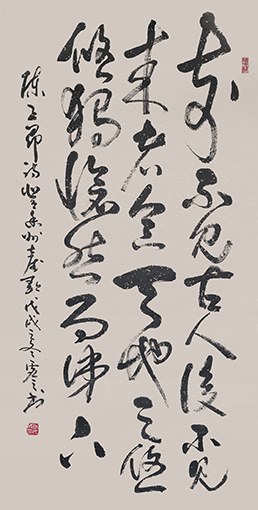 前不見古人後不見
來者念天地之悠
悠獨愴然而涕下
陳子昂詩登幽州臺歌戊戌書